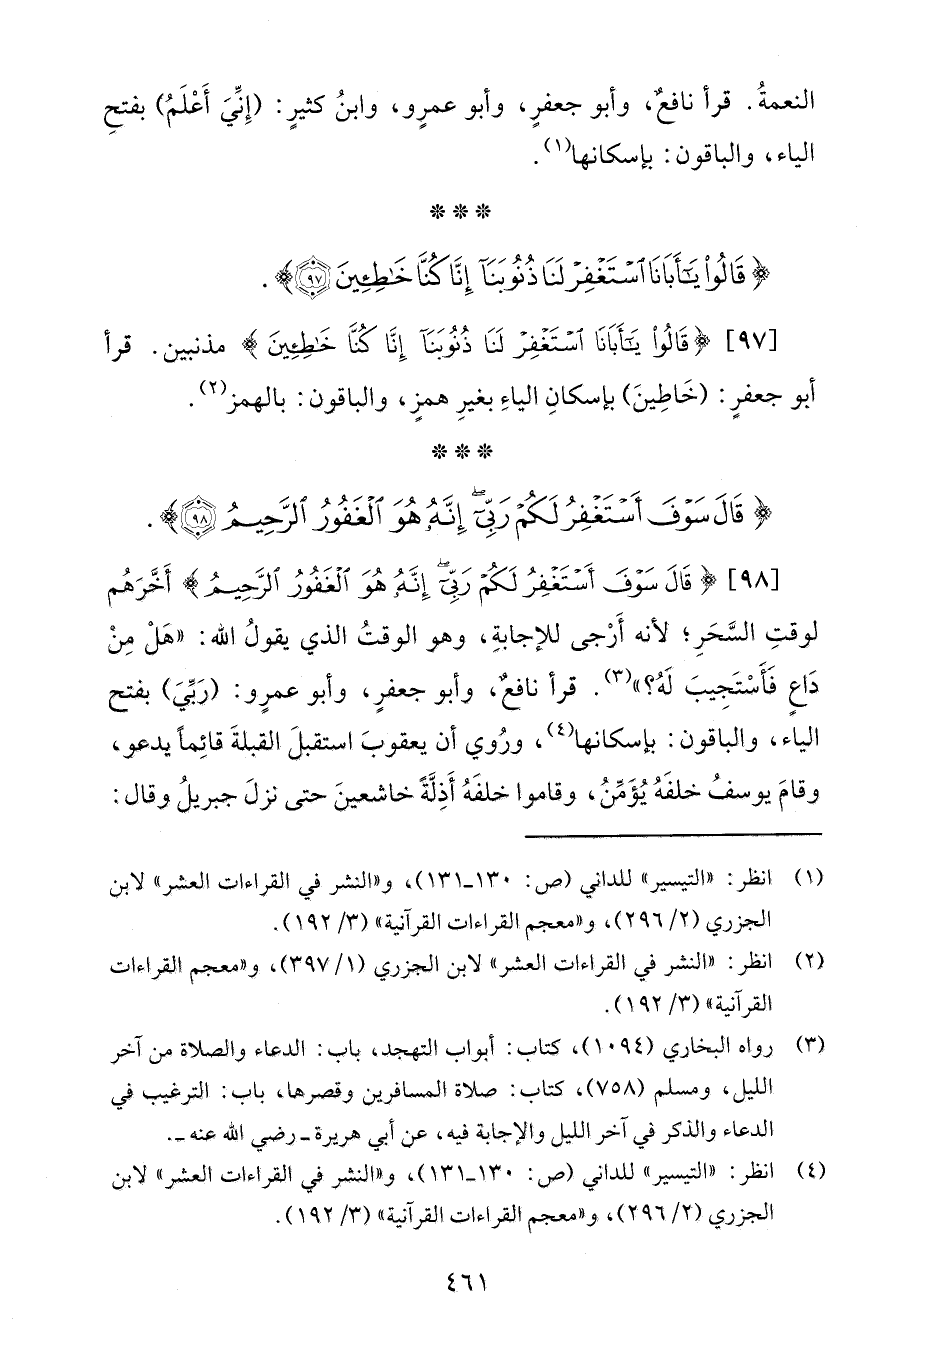 النعمةُ. قرأ نافعٌ، وأبو جعفرٍ، وأبو عمرٍو، وابنُ كثيرٍ: (إِنِّيَ أَعْلَمُ) بفتحِ
الياء، والباقون: بإسكانها(١).
***
﴿ قَالُوا۟ يَـٰٓأَبَانَا ٱسْتَغْفِرْ لَنَا ذُنُوبَنَآ إِنَّا كُنَّا خَـٰطِـِٔينَ ۝٩٧﴾.
[٩٧] ﴿ قَالُوا۟ يَـٰٓأَبَانَا ٱسْتَغْفِرْ لَنَا ذُنُوبَنَآ إِنَّا كُنَّا خَـٰطِـِٔينَ ﴾ مذنبين. قرأ
أبو جعفرٍ: (خَاطِينَ) بإسكانِ الياءِ بغيرِ همزٍ، والباقون: بالهمز(٢).
***
﴿ قَالَ سَوْفَ أَسْتَغْفِرُ لَكُمْ رَبِّىٓ ۖ إِنَّهُۥ هُوَ ٱلْغَفُورُ ٱلرَّحِيمُ ۝٩٨﴾.
[٩٨] ﴿ قَالَ سَوْفَ أَسْتَغْفِرُ لَكُمْ رَبِّىٓ ۖ إِنَّهُۥ هُوَ ٱلْغَفُورُ ٱلرَّحِيمُ ﴾ أَخَّرَهُم
لوقتِ السَّحَرِ؛ لأنه أَرْجى للإجابةِ، وهو الوقتُ الذي يقولُ الله: «هَلْ مِنْ
دَاعٍ فَأَسْتَجِيبَ لَهُ؟»(٣). قرأ نافعٌ، وأبو جعفرٍ، وأبو عمرٍو: (رَبِّيَ) بفتح
الياء، والباقون: بإسكانها(٤)، ورُوي أن يعقوبَ استقبلَ القبلةَ قائِماً يدعو،
وقامَ يوسفُ خلفَهُ يُؤَمِّنُ، وقاموا خلفَهُ أَذِلَّةً خاشعينَ حتى نزلَ جبريلُ وقال:
(١) انظر: «التيسير» للداني (ص: ١٣٠ـ١٣١)، و«النشر في القراءات العشر» لابن
الجزري (٢/ ٢٩٦)، و«معجم القراءات القرآنية» (٣/ ١٩٢).
(٢) انظر: «النشر في القراءات العشر» لابن الجزري (١/ ٣٩٧)، و«معجم القراءات
القرآنية» (٣/ ١٩٢).
(٣) رواه البخاري (١٠٩٤)، كتاب: أبواب التهجد، باب: الدعاء والصلاة من آخر
الليل، ومسلم (٧٥٨)، كتاب: صلاة المسافرين وقصرها، باب: الترغيب في
الدعاء والذكر في آخر الليل والإجابة فيه، عن أبي هريرة ـ رضي الله عنه ـ.
(٤) انظر: «التيسير» للداني (ص: ١٣٠ـ١٣١)، و«النشر في القراءات العشر» لابن
الجزري (٢/ ٢٩٦)، و«معجم القراءات القرآنية» (٣/ ١٩٢).
٤٦١